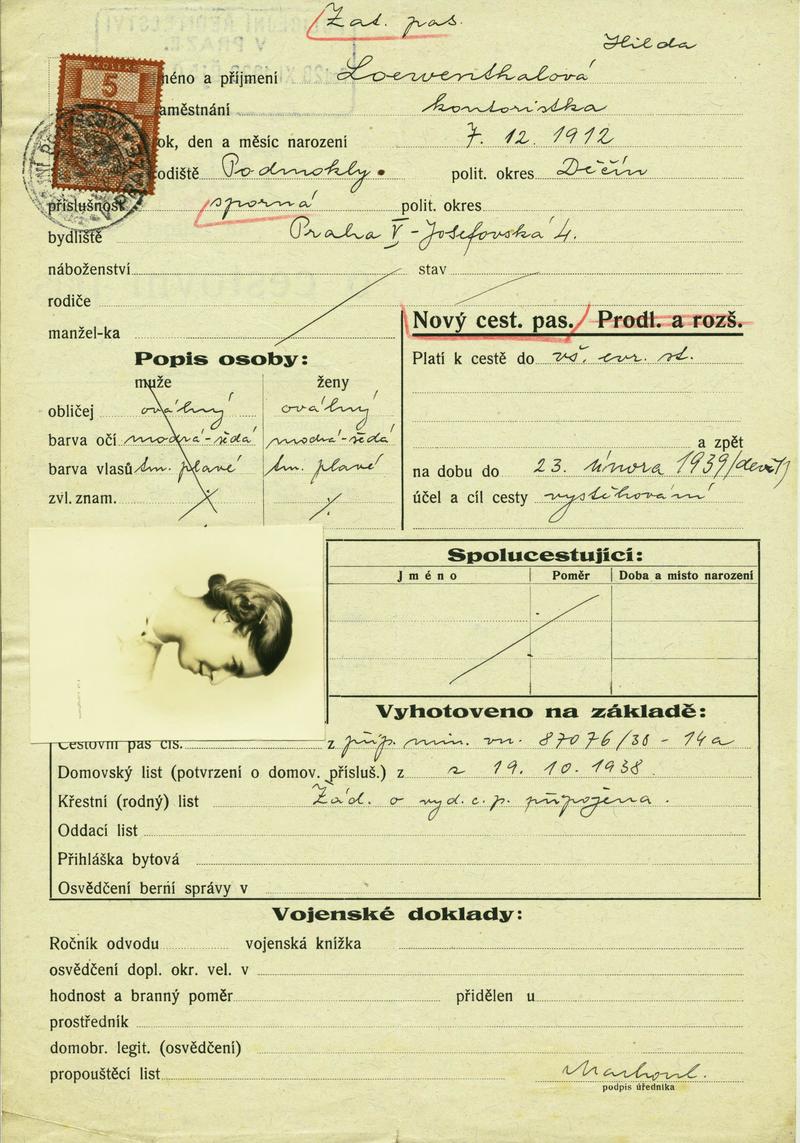 Zat. pas.
Hilda
méno a příjmení Loewenthalová
KOLEK
5
aměstnání kontoristka
ok, den a měsíc narození 7. 12. 1912
odiště Podmokly. polit. okres Děčín
příslušnost sporná polit. okres
bydliště Praha V - Josefovská 4.
náboženství stav
rodiče
manžel-ka
Nový cest. pas. Prodl. a rozš.
Popis osoby:
Platí k cestě do vš. evr. st.
muže ženy
obličej oválný oválný
barva očí modrá-šedá modrá-šedá
a zpět
barva vlasů tm. plavé tm. plavé
na dobu do 23. února 1939/devět/
zvl. znam.
účel a cíl cesty vystěhování
Spolucestující:
Jméno Poměr Doba a místo narození
Vyhotoveno na základě:
Cestovní pas čís. z příp. min. vn. 87076/38 - 14a
Domovský list (potvrzení o domov. přísluš.) z z 19. 10. 1938.
Křestní (rodný) list Žád. o vyd. c. p. připojena.
Oddací list
Přihláška bytová
Osvědčení berní správy v
Vojenské doklady:
Ročník odvodu vojenská knížka
osvědčení dopl. okr. vel. v
hodnost a branný poměr přidělen u
prostředník
domobr. legit. (osvědčení)
propouštěcí list
podpis úředníka